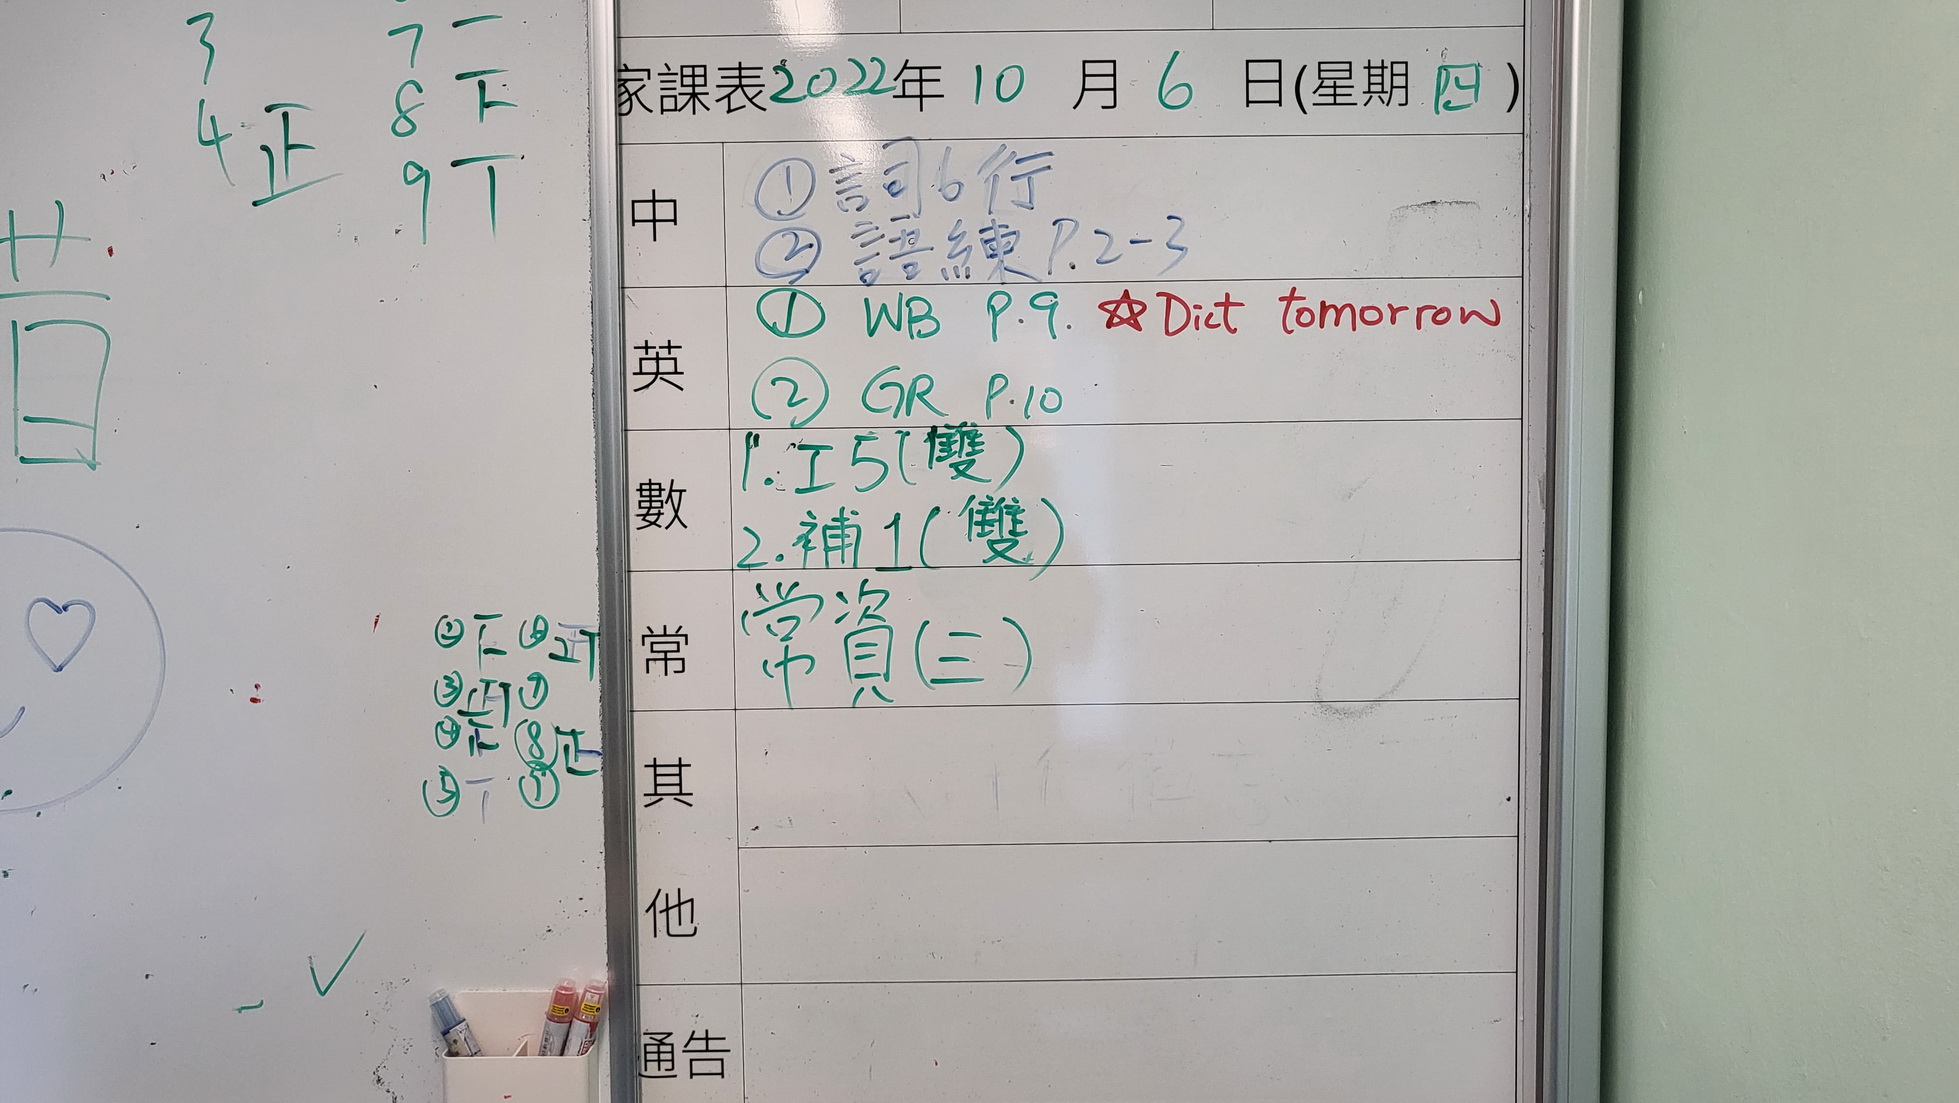 3
4 正
7 一
8 下
9 丅
家課表2022年 10 月 6 日(星期 四)
中
① 詞 6 行
② 語練 P.2-3
英
① WB P.9. ☆ Dict tomorrow
② GR P.10
數
1. 工5(雙)
2. 補1(雙)
常
常資(三)
其
他
通告
② 下
③ 正丅 ⑦
④ 正 ⑧ 正
⑤ 丅